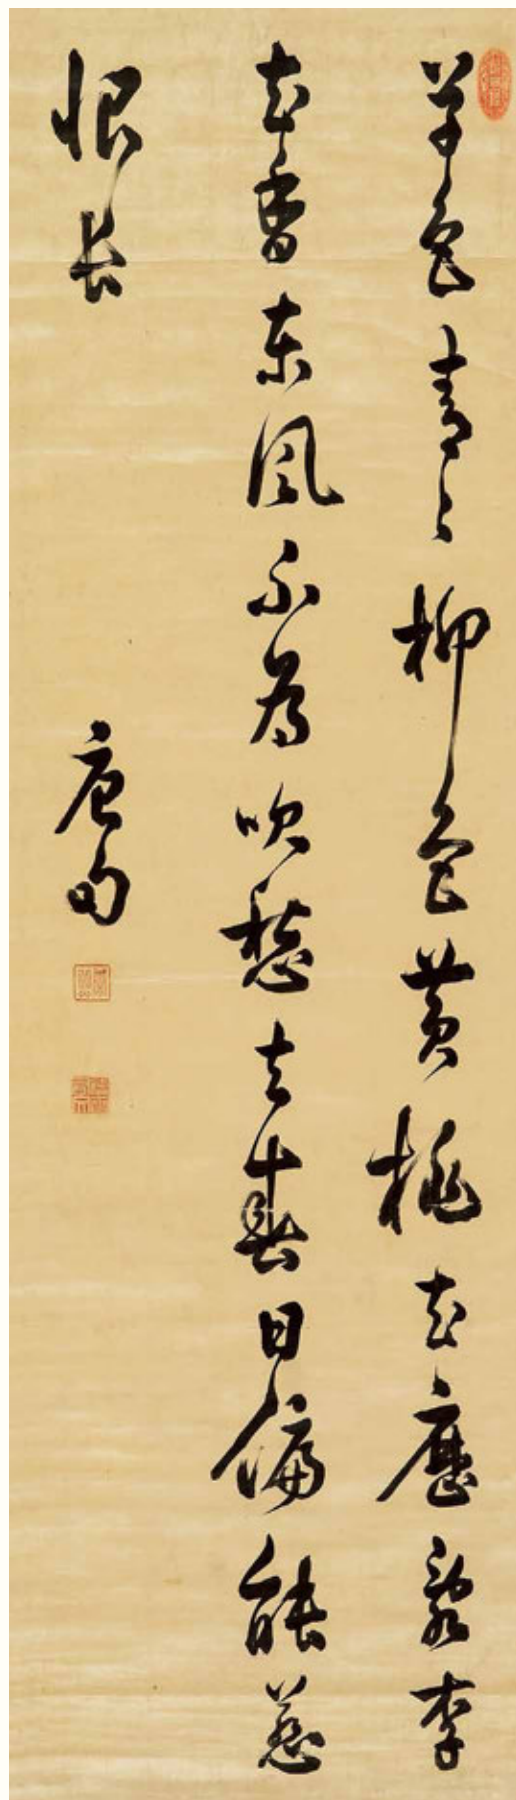 草色青〻柳色黄桃花歷亂李
花香東風不為吹愁去春日偏能惹
恨長
唐句